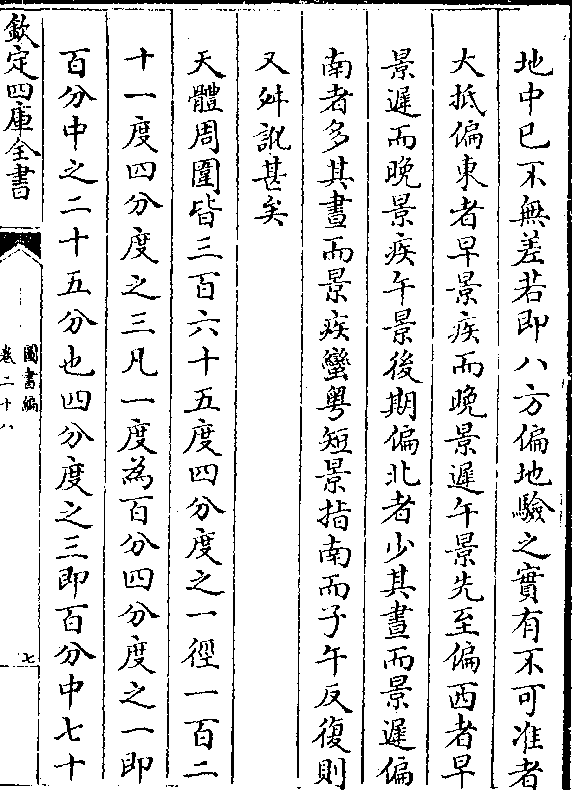 地中已不無差若即八方偏地驗之實有不可准者
大抵偏東者早景疾而晚景遲午景先至偏西者早
景遲而晚景疾午景後期偏北者少其晝而景遲偏
南者多其晝而景疾蠻粵短景指南而子午反復則
又舛訛甚矣
天體周圍皆三百六十五度四分度之一徑一百二
十一度四分度之三凡一度為百分四分度之一即
百分中之二十五分也四分度之三即百分中七十
欽定四庫全書
圖書編
卷二十八
七